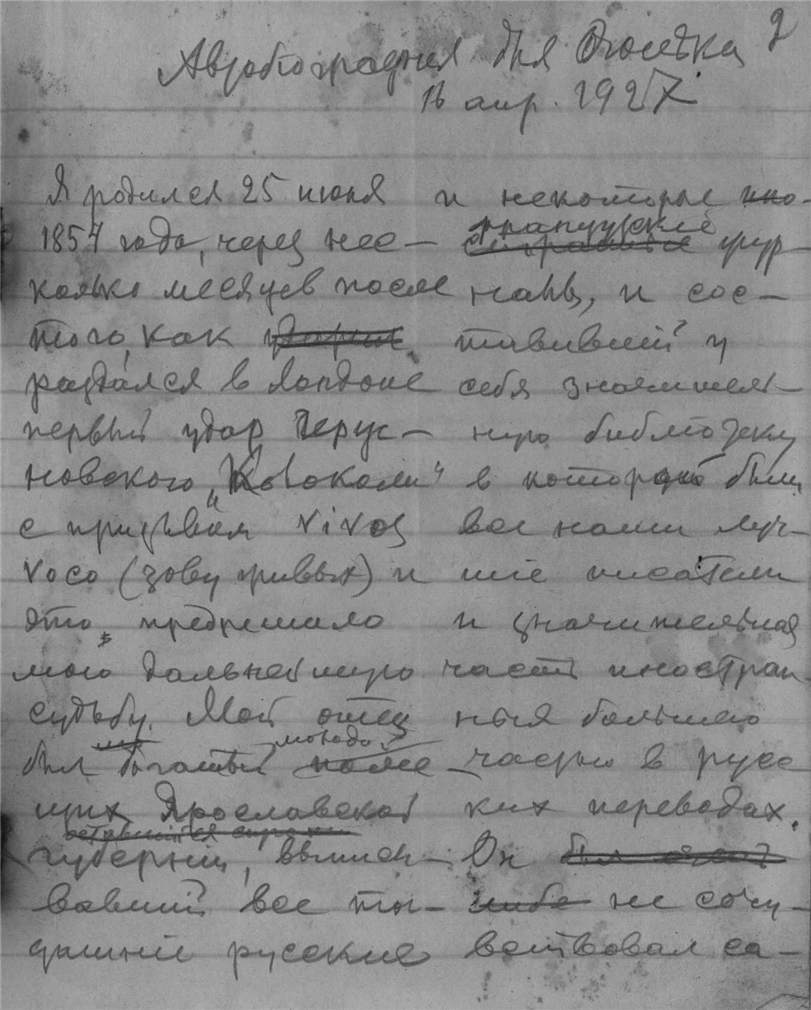 2
Автобиография для Огонька
16 апр. 1927
Я родился 25 июня
1854 года, через нес–
колько месяцев после
того, как
раздался в Лондоне
первый удар Герус–
новского „Колокола“
с призывом Vivos
voco (зову живых) и
это предрешало
мою дальнейшую
судьбу. Мой отец
молодой
был богатый поме
щик Ярославской
оставшийся сиротою
губернии, выписы–
вавший все то–
дашние русские
и некоторые ино–
французские
жур–
налы, и сос–
тавивший у
себя значитель–
ную библиотеку
в которой были
все наши луч–
шие писатели
и значительная
часть иностран–
ныя большею
частью в русс
ких переводах.
Он
не сочу–
вствовал са–